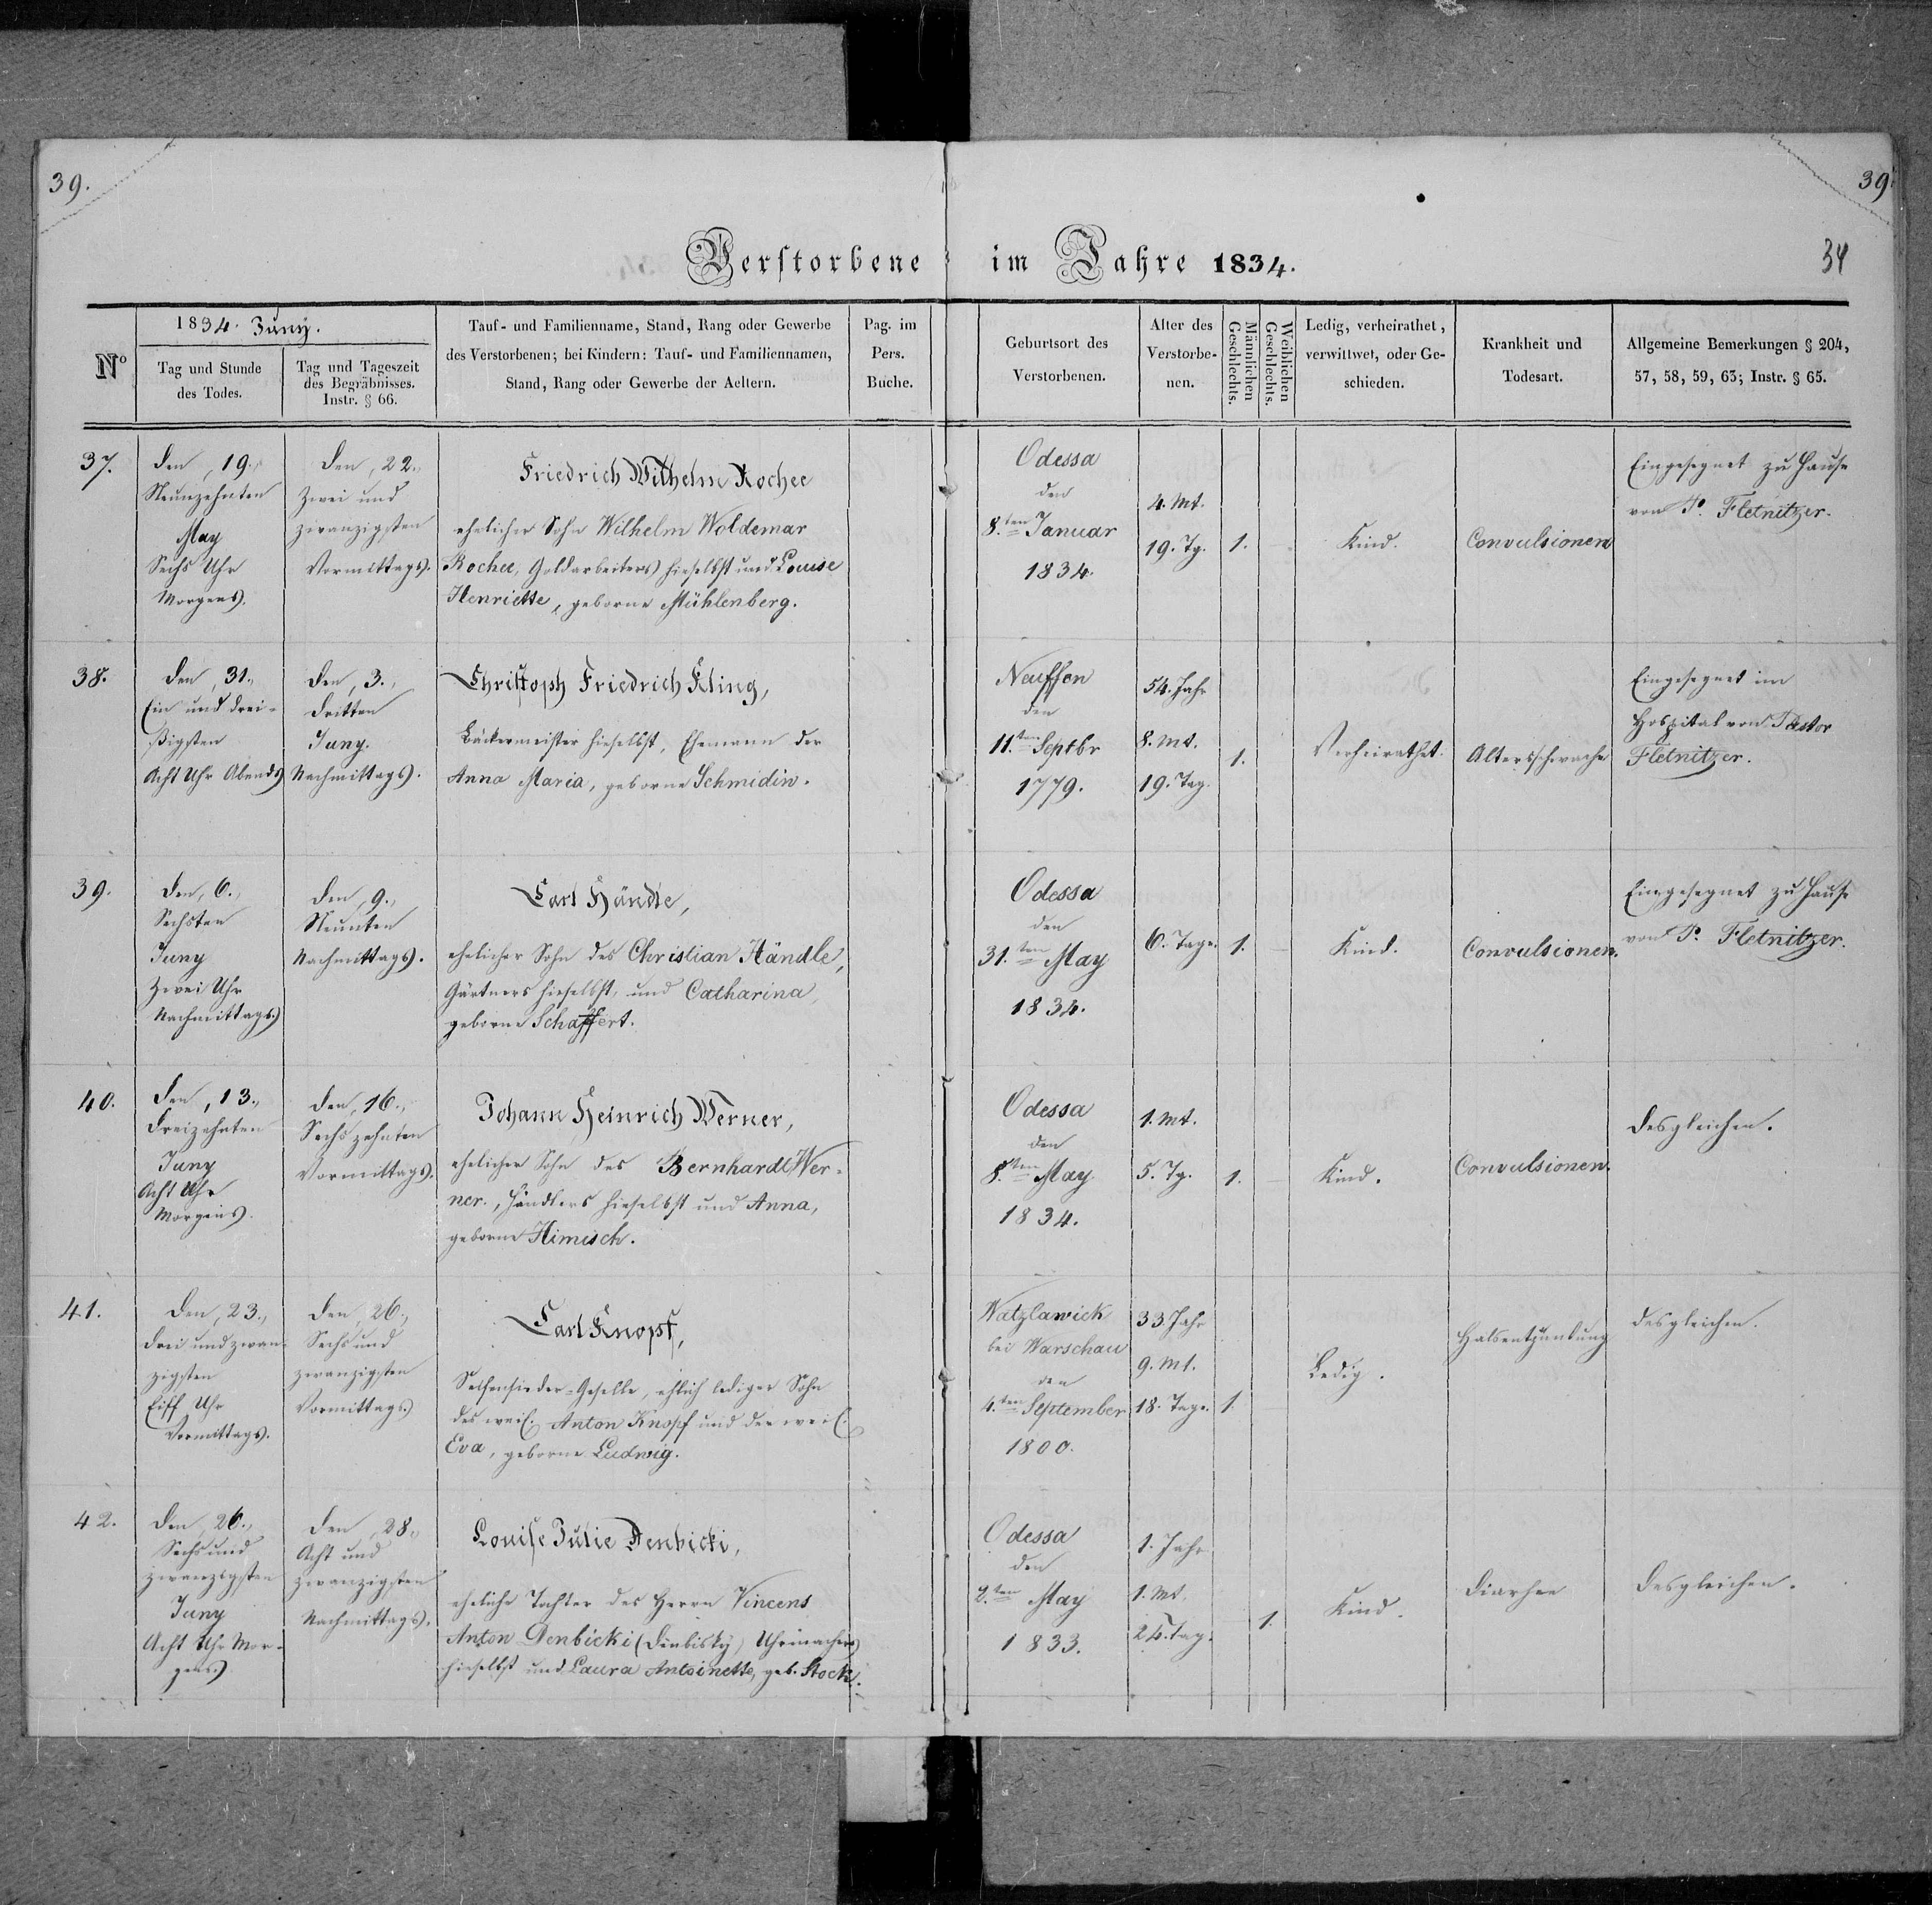 39.
39.
34
Verstorbene im Jahre 1834.
No
1834. Juny.
Tag und Stunde
des Todes.
Tag und Tageszeit
des Begräbnisses.
Instr. § 66.
Tauf- und Familienname, Stand, Rang oder Gewerbe
des Verstorbenen; bei Kindern: Tauf- und Familiennamen,
Stand, Rang oder Gewerbe der Aeltern.
Pag. im
Pers.
Buche.
Geburtsort des
Verstorbenen.
Alter des
Verstorbe-
nen.
Männlichen
Geschlechts.
Weiblichen
Geschlechts.
Ledig, verheirathet,
verwittwet, oder Ge-
schieden.
Krankheit und
Todesart.
Allgemeine Bemerkungen § 204,
57, 58, 59, 63; Instr. § 65.
37.
den, 19.,
Neunzehnten
May
Sechs Uhr
Morgens.
den, 22.,
Zwei und
zwanzigsten
Vormittags.
Friedrich Wilhelm Rochee
ehelicher Sohn Wilhelm Woldemar
Rochee, Goldarbeiters hieselbst und Louise
Henriette, geborne Mühlenberg.
Odessa
den
8.ten Januar
1834.
4. Mt.
19. Tg.
1.
Kind.
Convulsionen
Eingesegnet zu Hause
von P. Fletnitzer.
38.
den, 31.,
Ein und drei-
ßigsten
Acht Uhr Abends
den, 3.,
dritten
Juny.
Nachmittags.
Christoph Friedrich Kling,
Bäckermeister hieselbst, Ehemann der
Anna Maria, geborne Schmidin.
Neuffen
den
11.ten Septbr
1779.
54. Jahr
8. Mt.
19. Tag.
1.
Verheirathet.
Altersschwache
Eingesegnet im
Hospital von Pastor
Fletnitzer.
39.
den, 6.,
Sechsten
Juny
Zwei Uhr
Nachmittags.
den, 9.,
Neunten
Nachmittags.
Carl Händle,
ehelicher Sohn des Christian Händle,
Gärtners hieselbst, und Catharina,
geborne Schaffert.
Odessa
den
31.ten May
1834.
6. Tage.
1.
Kind.
Convulsionen.
Eingesegnet zu Hause
von P. Fletnitzer.
40.
den, 13.,
dreizehnten
Juny
Acht Uhr
Morgens.
den, 16.,
Sechszehnten
Vormittags.
Johann Heinrich Werner,
ehelicher Sohn des Bernhardt Wer-
ner., Händlers hieselbst und Anna,
geborne Himisch.
Odessa
den
8.ten May
1834.
1. Mt.
5. Tg.
1.
Kind.
Convulsionen.
desgleichen.
41.
den, 23.,
drei und zwan-
zigsten
Eilf Uhr
Vormittags.
den, 26.,
Sechs und
zwanzigsten
Vormittags
Carl Knopf,
Seifensieder-Geselle, ehlich lediger Sohn
des weil. Anton Knopf und der weil.
Eva, geborne Ludwig.
Watzlawick
bei Warschau
den
4.ten September
1800.
33. Jahr
9. Mt.
18. Tage.
1.
Ledig.
Halsentzündung
desgleichen.
42.
den, 26.,
Sechs und
zwanzigsten
Juny
Acht Uhr Mor-
gens.
den, 28.,
Acht und
zwanzigsten
Nachmittags.
Louise Julie Denbicki,
eheliche Tochter des Herrn Vincens
Anton Denbicki (Dinbisky) Uhrmachers
hieselbst und Laura Antoinette, geb. Stock.
Odessa
den
2.ten May
1833.
1. Jahr
1. Mt.
24. Tag.
1.
Kind.
Diarhee
desgleichen.